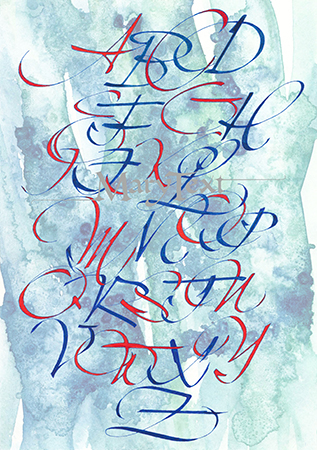 A B C D
E F G H
I J K L
M N O P
Q R S T U
V W X Y
Z